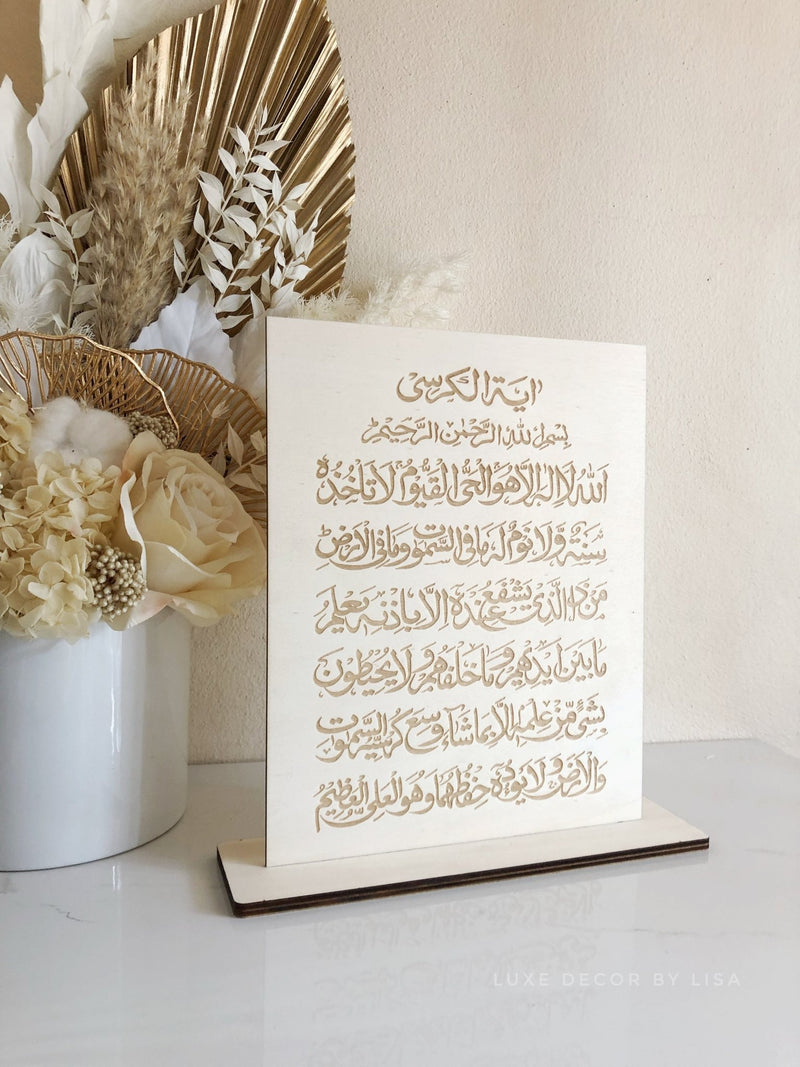 اٰية الكرسى
بِسْمِ اللّٰهِ الرَّحْمٰنِ الرَّحِيْمِ
اَللّٰهُ لَا اِلٰهَ اِلَّا هُوَ اَلْحَىُّ الْقَيُّوْمُ لَا تَأْخُذُهٗ
سِنَةٌ وَّلَا نَوْمٌ لَهٗ مَا فِى السَّمٰوٰتِ وَمَا فِى الْاَرْضِ
مَنْ ذَا الَّذِىْ يَشْفَعُ عِنْدَهٗ اِلَّا بِاِذْنِهٖ يَعْلَمُ
مَا بَيْنَ اَيْدِيْهِمْ وَمَا خَلْفَهُمْ وَلَا يُحِيْطُوْنَ
بِشَىْءٍ مِّنْ عِلْمِهٖ اِلَّا بِمَا شَآءَ وَسِعَ كُرْسِيُّهُ السَّمٰوٰتِ
وَالْاَرْضَ وَلَا يَئُوْدُهٗ حِفْظُهُمَا وَهُوَ الْعَلِىُّ الْعَظِيْمُ
LUXE DECOR BY LISA